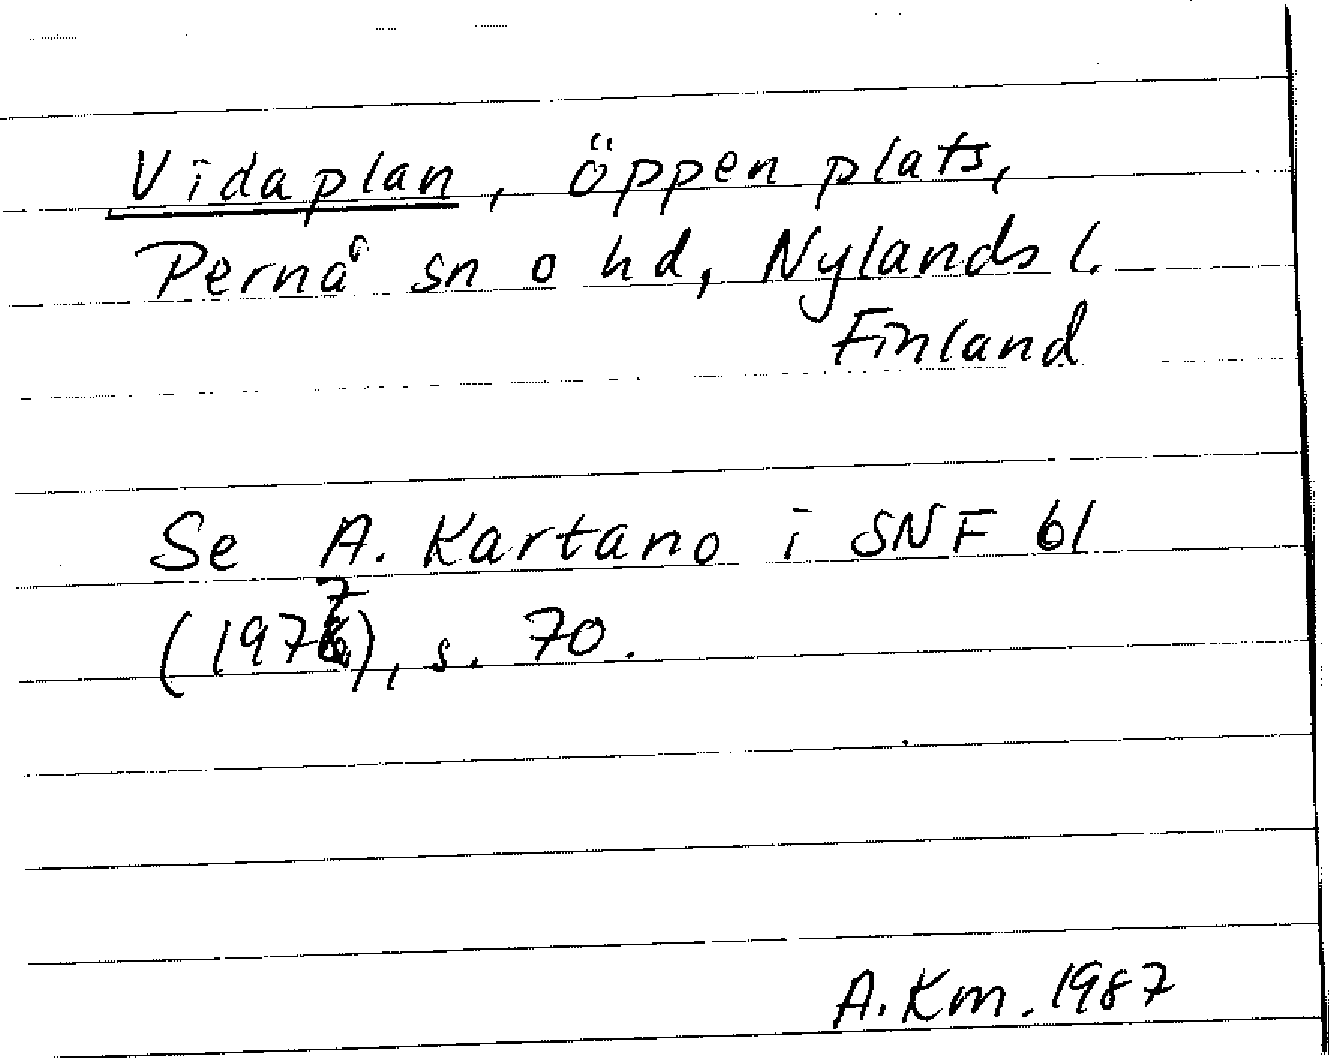 Vidaplan, öppen plats,
Pernå sn o hd, Nylands l.
Finland
Se A. Kartano i SNF 61
(1977), s. 70.
A. Km. 1987